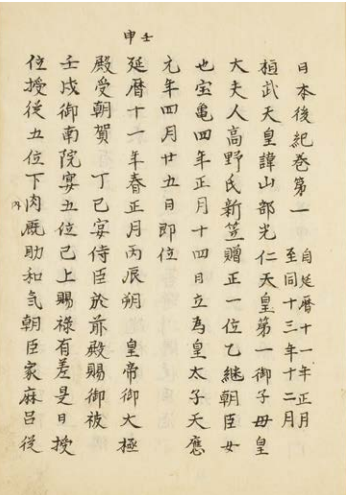 壬申
日本後紀巻第一
自延暦十一年正月
至同十三年十二月
桓武天皇諱山部光仁天皇第一御子母皇
大夫人高野氏新笠贈正一位乙継朝臣女
也宝亀四年正月十四日立為皇太子天應
元年四月廿五日即位
延暦十一年春正月丙辰朔 皇帝御大極
殿受朝賀 丁巳宴侍臣於前殿賜御被
壬戌御南院宴五位己上賜禄有差是日授
位授従五位下肉厩助和気朝臣家麻呂従